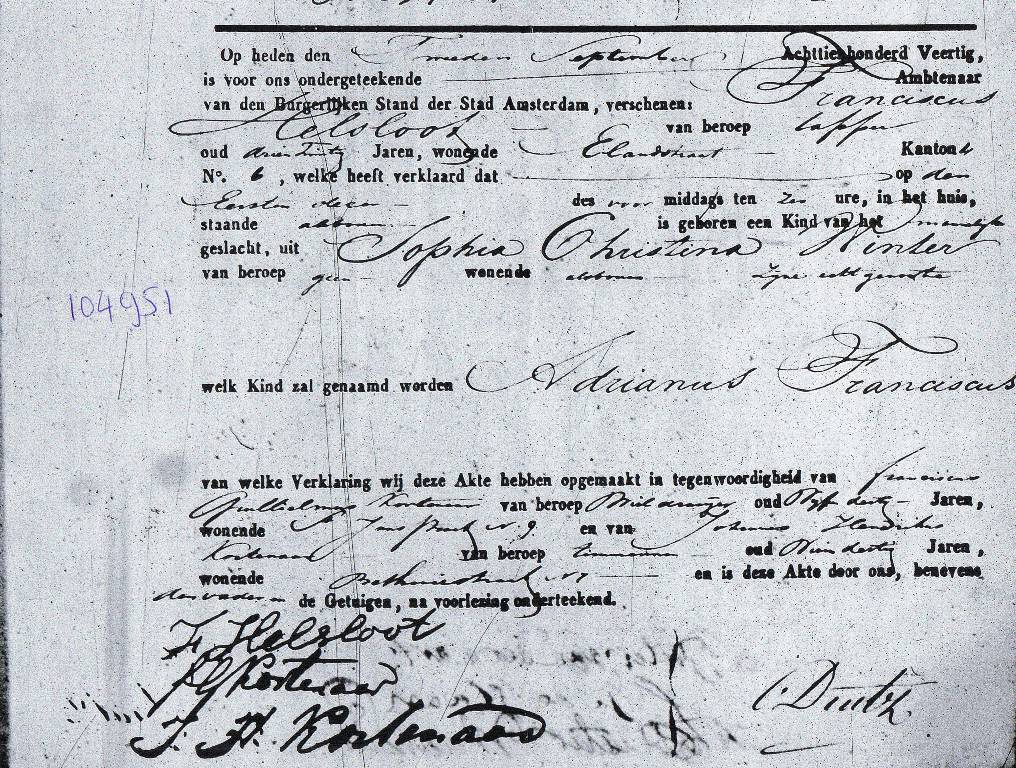 Op heden den Tweeden September Achttienhonderd Veertig,
is voor ons ondergeteekende Ambtenaar
van den Burgerlijken Stand der Stad Amsterdam, verschenen: Franciscus
Helsloot van beroep tapper
oud drie en dertig Jaren, wonende Elandstraat Kanton
N°. 6, welke heeft verklaard dat op den
Eersten dezer des voor middags ten zes ure, in het huis,
staande aldaar is geboren een Kind van het mannelijk
geslacht, uit Sophia Christina Winter
van beroep geen wonende alsboven zijne echtgenoote
104951
welk Kind zal genaamd worden Adrianus Franciscus
van welke Verklaring wij deze Akte hebben opgemaakt in tegenwoordigheid van franciscus
Guilhelmus Kortenaar van beroep oud Vijf dertig Jaren,
wonende St Jans N 9 en van Johannes Hendrikus
Kortenaar van beroep timmerman oud dertig Jaren,
wonende en is deze Akte door ons, benevens
den vader en de Getuigen, na voorlezing onderteekend.
F. Helsloot
F G Kortenaar
J. H. Kortenaar
C Deutz